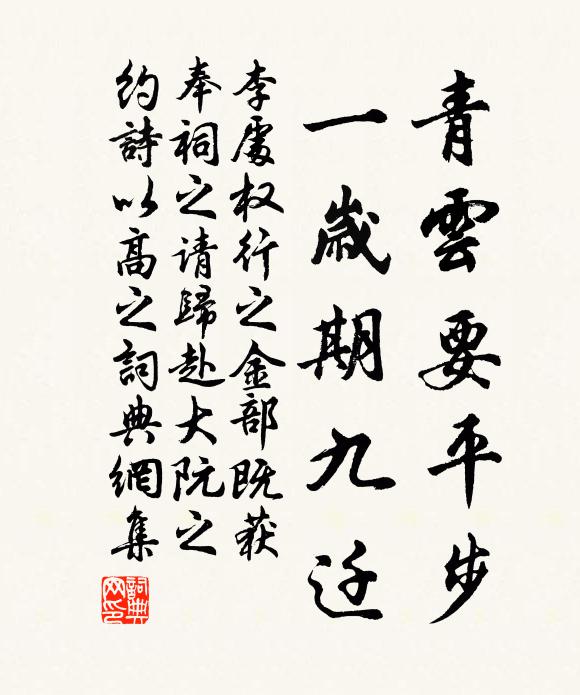 青雲要平步
一歲期九迁
李處权行之金部既获
奉祠之请歸赴大阮之
约詩以高之詞典網集
詞典网印